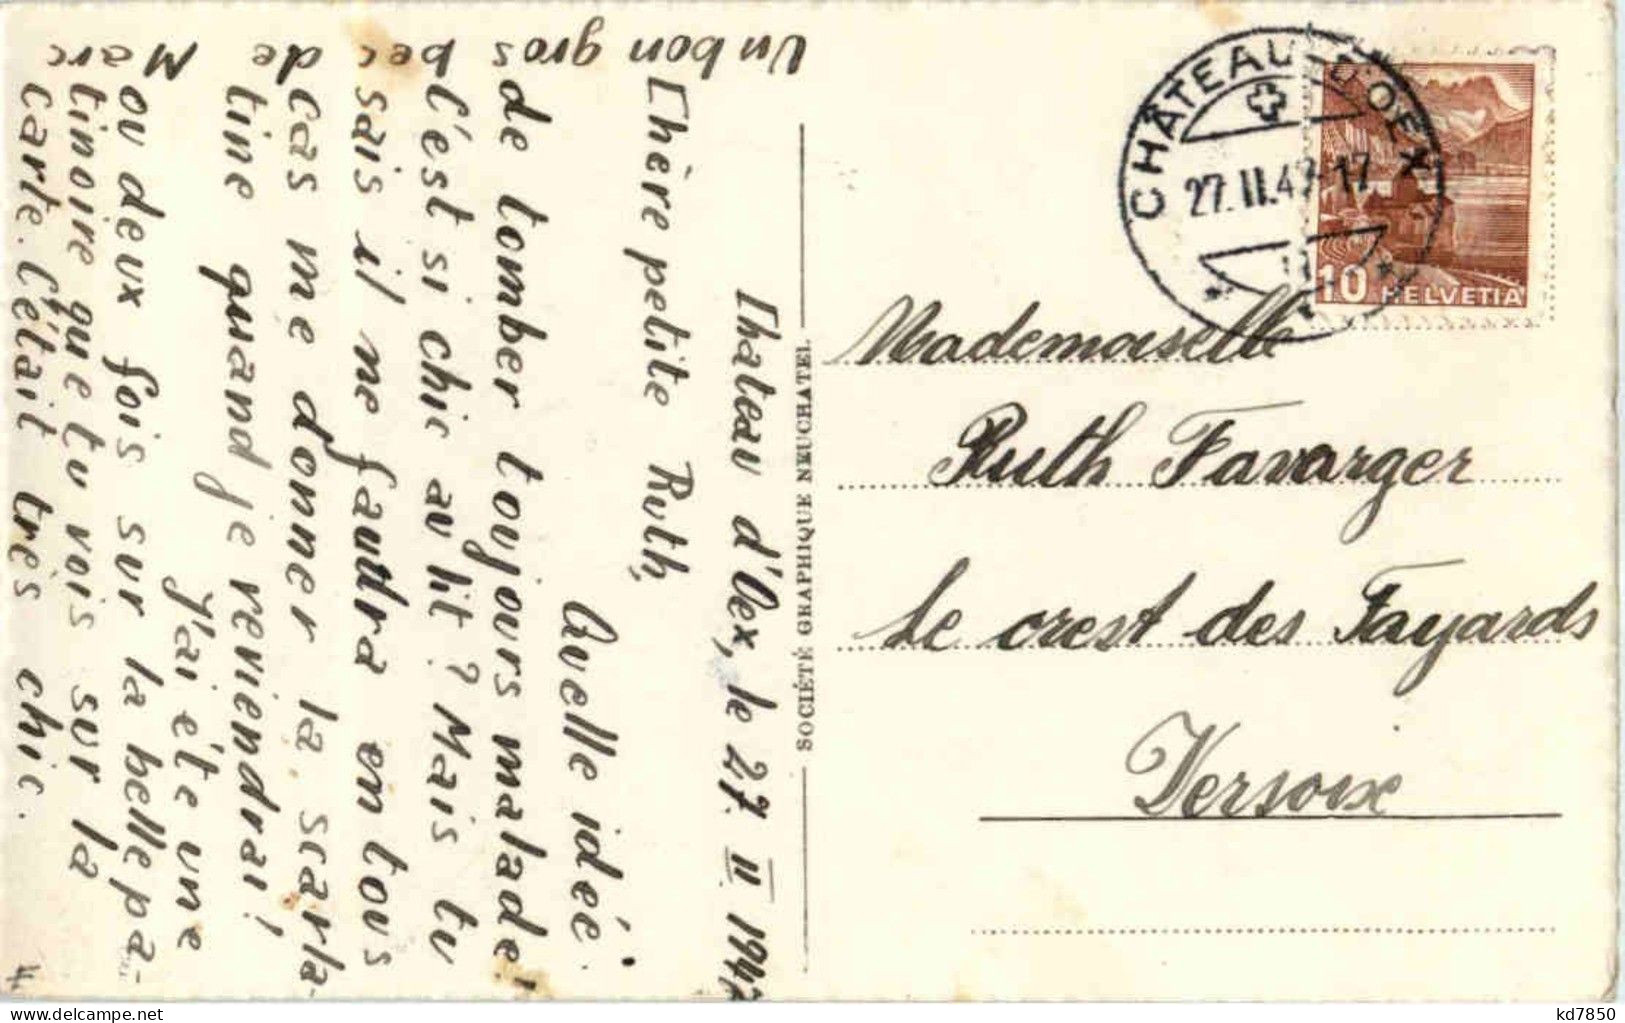 Château d'Oex, le 27. II 1947
Chère petite Ruth,
Quelle idée
de tomber toujours malade!
C'est si chic au lit? Mais tu
sais il ne faudra en tous
cas me donner la scarla-
tine quand je reviendrai!
J'ai été une
ou deux fois sur la belle pa-
tinoire que tu vois sur la
carte. C'était très chic.
Un bon gros
bec
de
Marc
SOCIÉTÉ GRAPHIQUE NEUCHATEL
CHÂTEAU-D'OEX
27.II.47-17
10 HELVETIA
Mademoiselle
Ruth Favarger
Le crest des Fayards
Versoix
kd7850